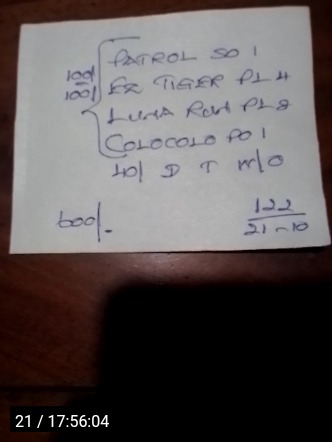 100/ PATROL SO 1
100/ EX TIGER PL 4
LUNA RON PL 8
COLOCOLO PO 1
40/ D T M/O
600/-
122
21-10
21 / 17:56:04